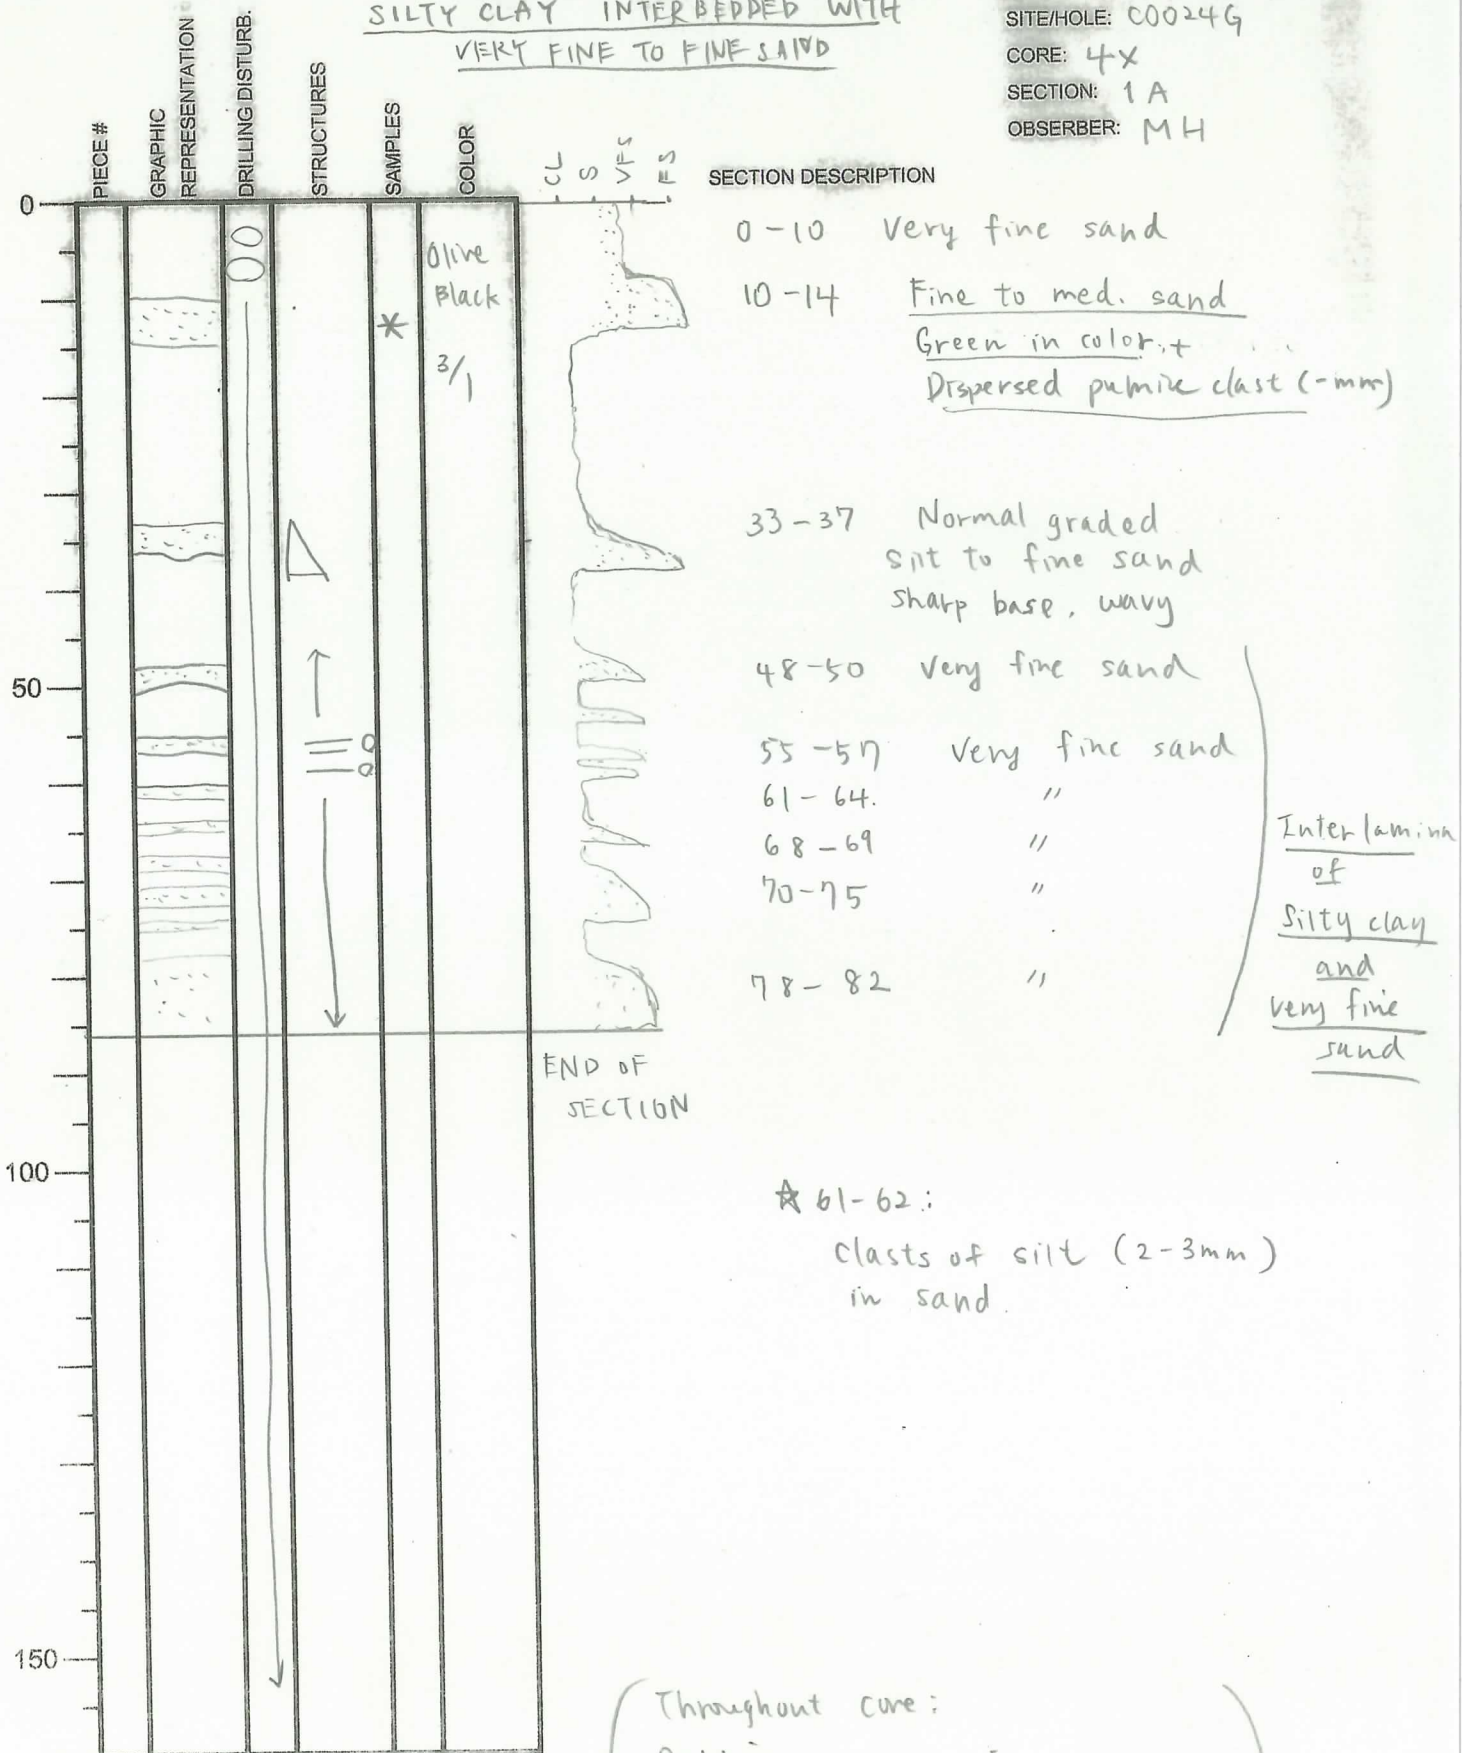 SILTY CLAY INTERBEDDED WITH
VERY FINE TO FINE SAND
SITE/HOLE: C0024G
CORE: 4X
SECTION: 1A
OBSERBER: MH
PIECE #
GRAPHIC
REPRESENTATION
DRILLING DISTURB.
STRUCTURES
SAMPLES
COLOR
CL
S
VFS
FS
SECTION DESCRIPTION
0
50
100
150
Olive
Black
3/1
*
0-10 Very fine sand
10-14 Fine to med. sand
Green in color.+
Dispersed pumice clast (-mm)
33-37 Normal graded
silt to fine sand
sharp base, wavy
48-50 Very fine sand
55-57 Very fine sand
61-64. "
68-69 "
70-75 "
78-82 "
Interlamina
of
Silty clay
and
very fine
sand
END OF
SECTION
☆ 61-62:
Clasts of silt (2-3mm)
in sand.
Throughout core: